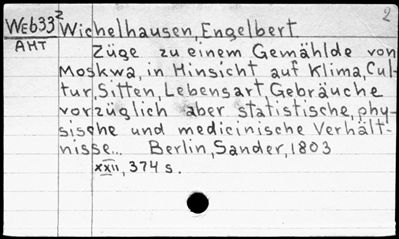 2
Web33² Wichelhausen, Engelbert
AHT Züge zu einem Gemählde von
Moskwa, in Hinsicht auf Klima, Cul-
tur, Sitten, Lebensart, Gebräuche
vorzüglich aber statistische, phy-
sische und medicinische Verhält-
nisse... Berlin, Sander, 1803
xxii, 374 s.